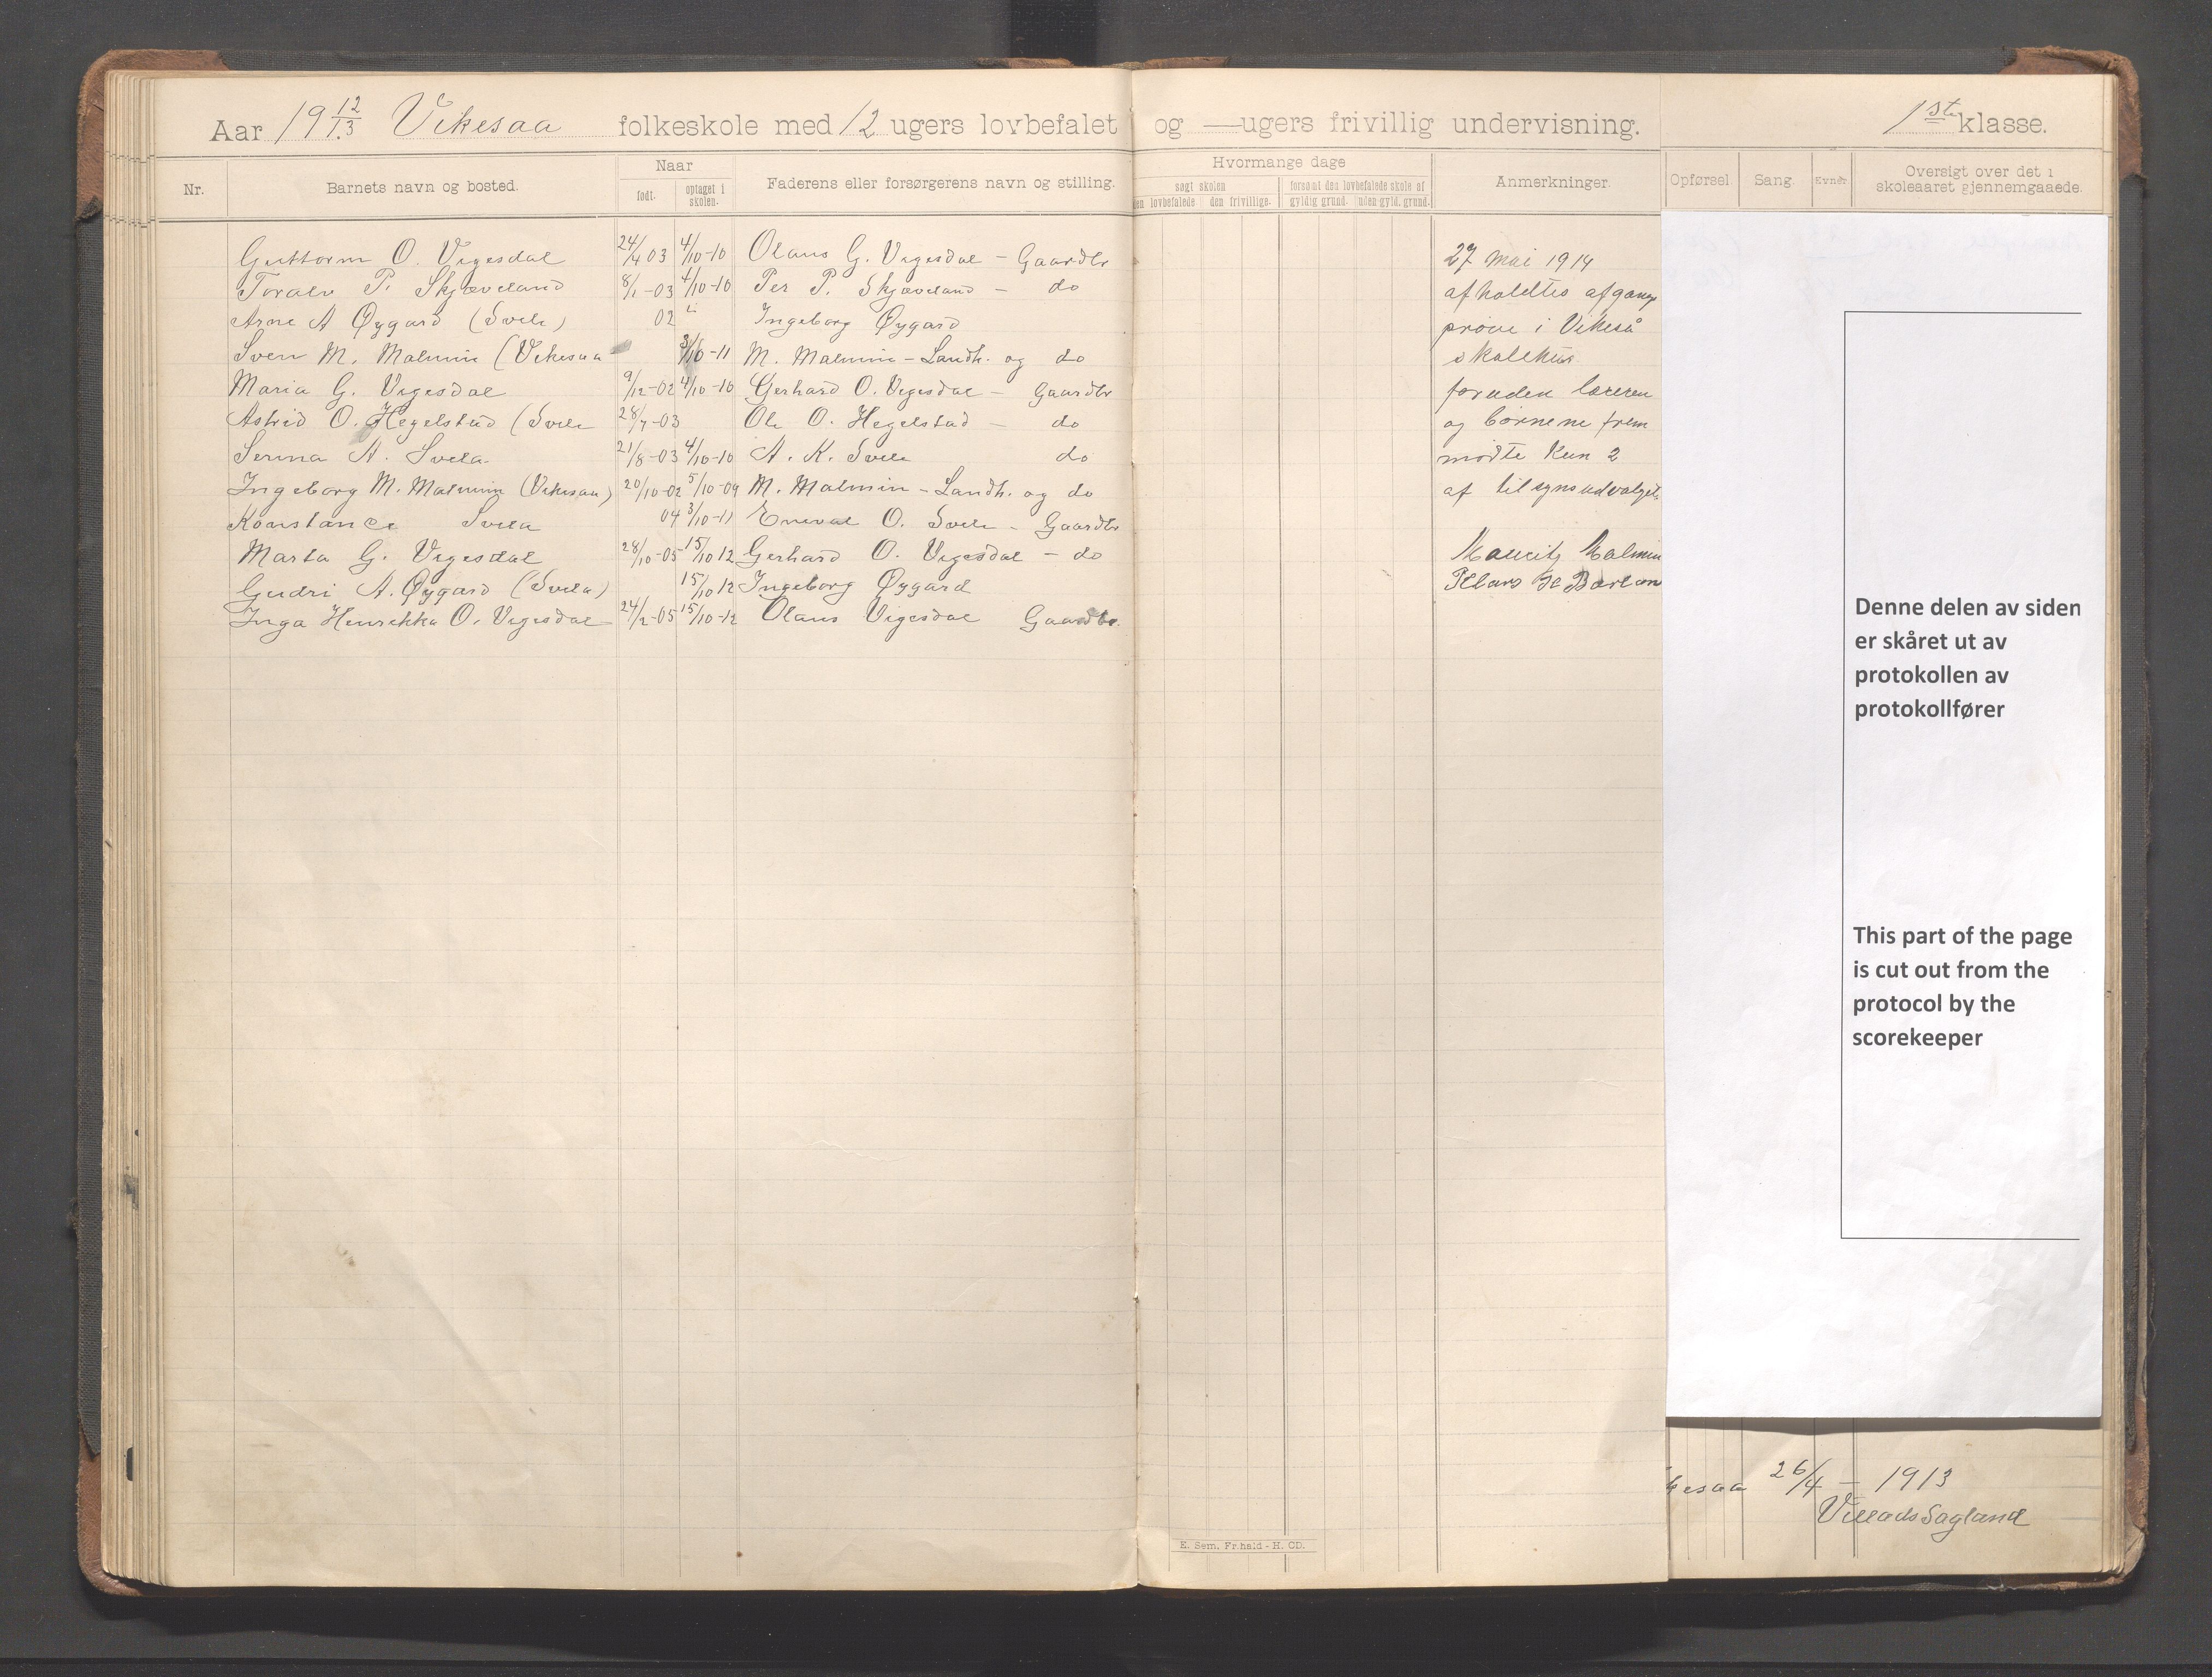 Aar 19 12/13 Vikesaa folkeskole med 12 ugers lovbefalet og — ugers frivillig undervisning. 1ste klasse.
Nr. Barnets navn og bosted. Naar født. optaget i skolen. Faderens eller forsørgerens navn og stilling. Hvormange dage søgt skolen den lovbefalede den frivillige. forsømt den lovbefalede skole af gyldig grund. uden gyld. grund. Anmerkninger. Opførsel. Sang. Evner. Oversigt over det i skoleaaret gjennemgaaede.
Guttorm O. Vigesdal 24/4 03 4/10-10 Olaus G. Vigesdal - Gaardbr
Toralv P. Skjæveland 8/1-03 4/10-10 Per P. Skjæveland - do
Arne A Øygard (Svela) 02 " Ingeborg Øygard
Sven M. Malmin (Vikesaa 3/10-11 M. Malmin - Landh. og do
Maria G. Vigesdal 9/12-02 4/10-10 Gerhard O. Vigesdal - Gaardbr
Astrid O. Hegelstad (Svela 28/7-03 Ole O. Hegelstad - do
Serina A. Svela 21/8-03 4/10-10 A. K. Svela do
Ingeborg M. Malmin (Vikesaa) 20/10-02 5/10-09 M. Malmin - Landh. og do
Konstance Svela 04 3/10-11 Eneval O. Svela - Gaardbr
Marta G. Vigesdal 28/10-05 15/10 12 Gerhard O. Vigesdal - do
Gudri A. Øygard (Svela) 15/10 12 Ingeborg Øygard
Inga Henrikka O. Vigesdal 24/2-05 15/10-12 Olaus Vigesdal Gaardbr.
27 mai 1914
afholdtes afgangs
prøve i Vikeså
skolehus.
foruden læreren
og børnene frem
mødte kun 2
af tilsynsudvalget
Mauritz Malmin
Denne delen av siden
er skåret ut av
protokollen av
protokollfører
This part of the page
is cut out from the
protocol by the
scorekeeper
kesaa 26/4 - 1913
Villads Sagland
E. Sem. Fr.hald - H. CD.